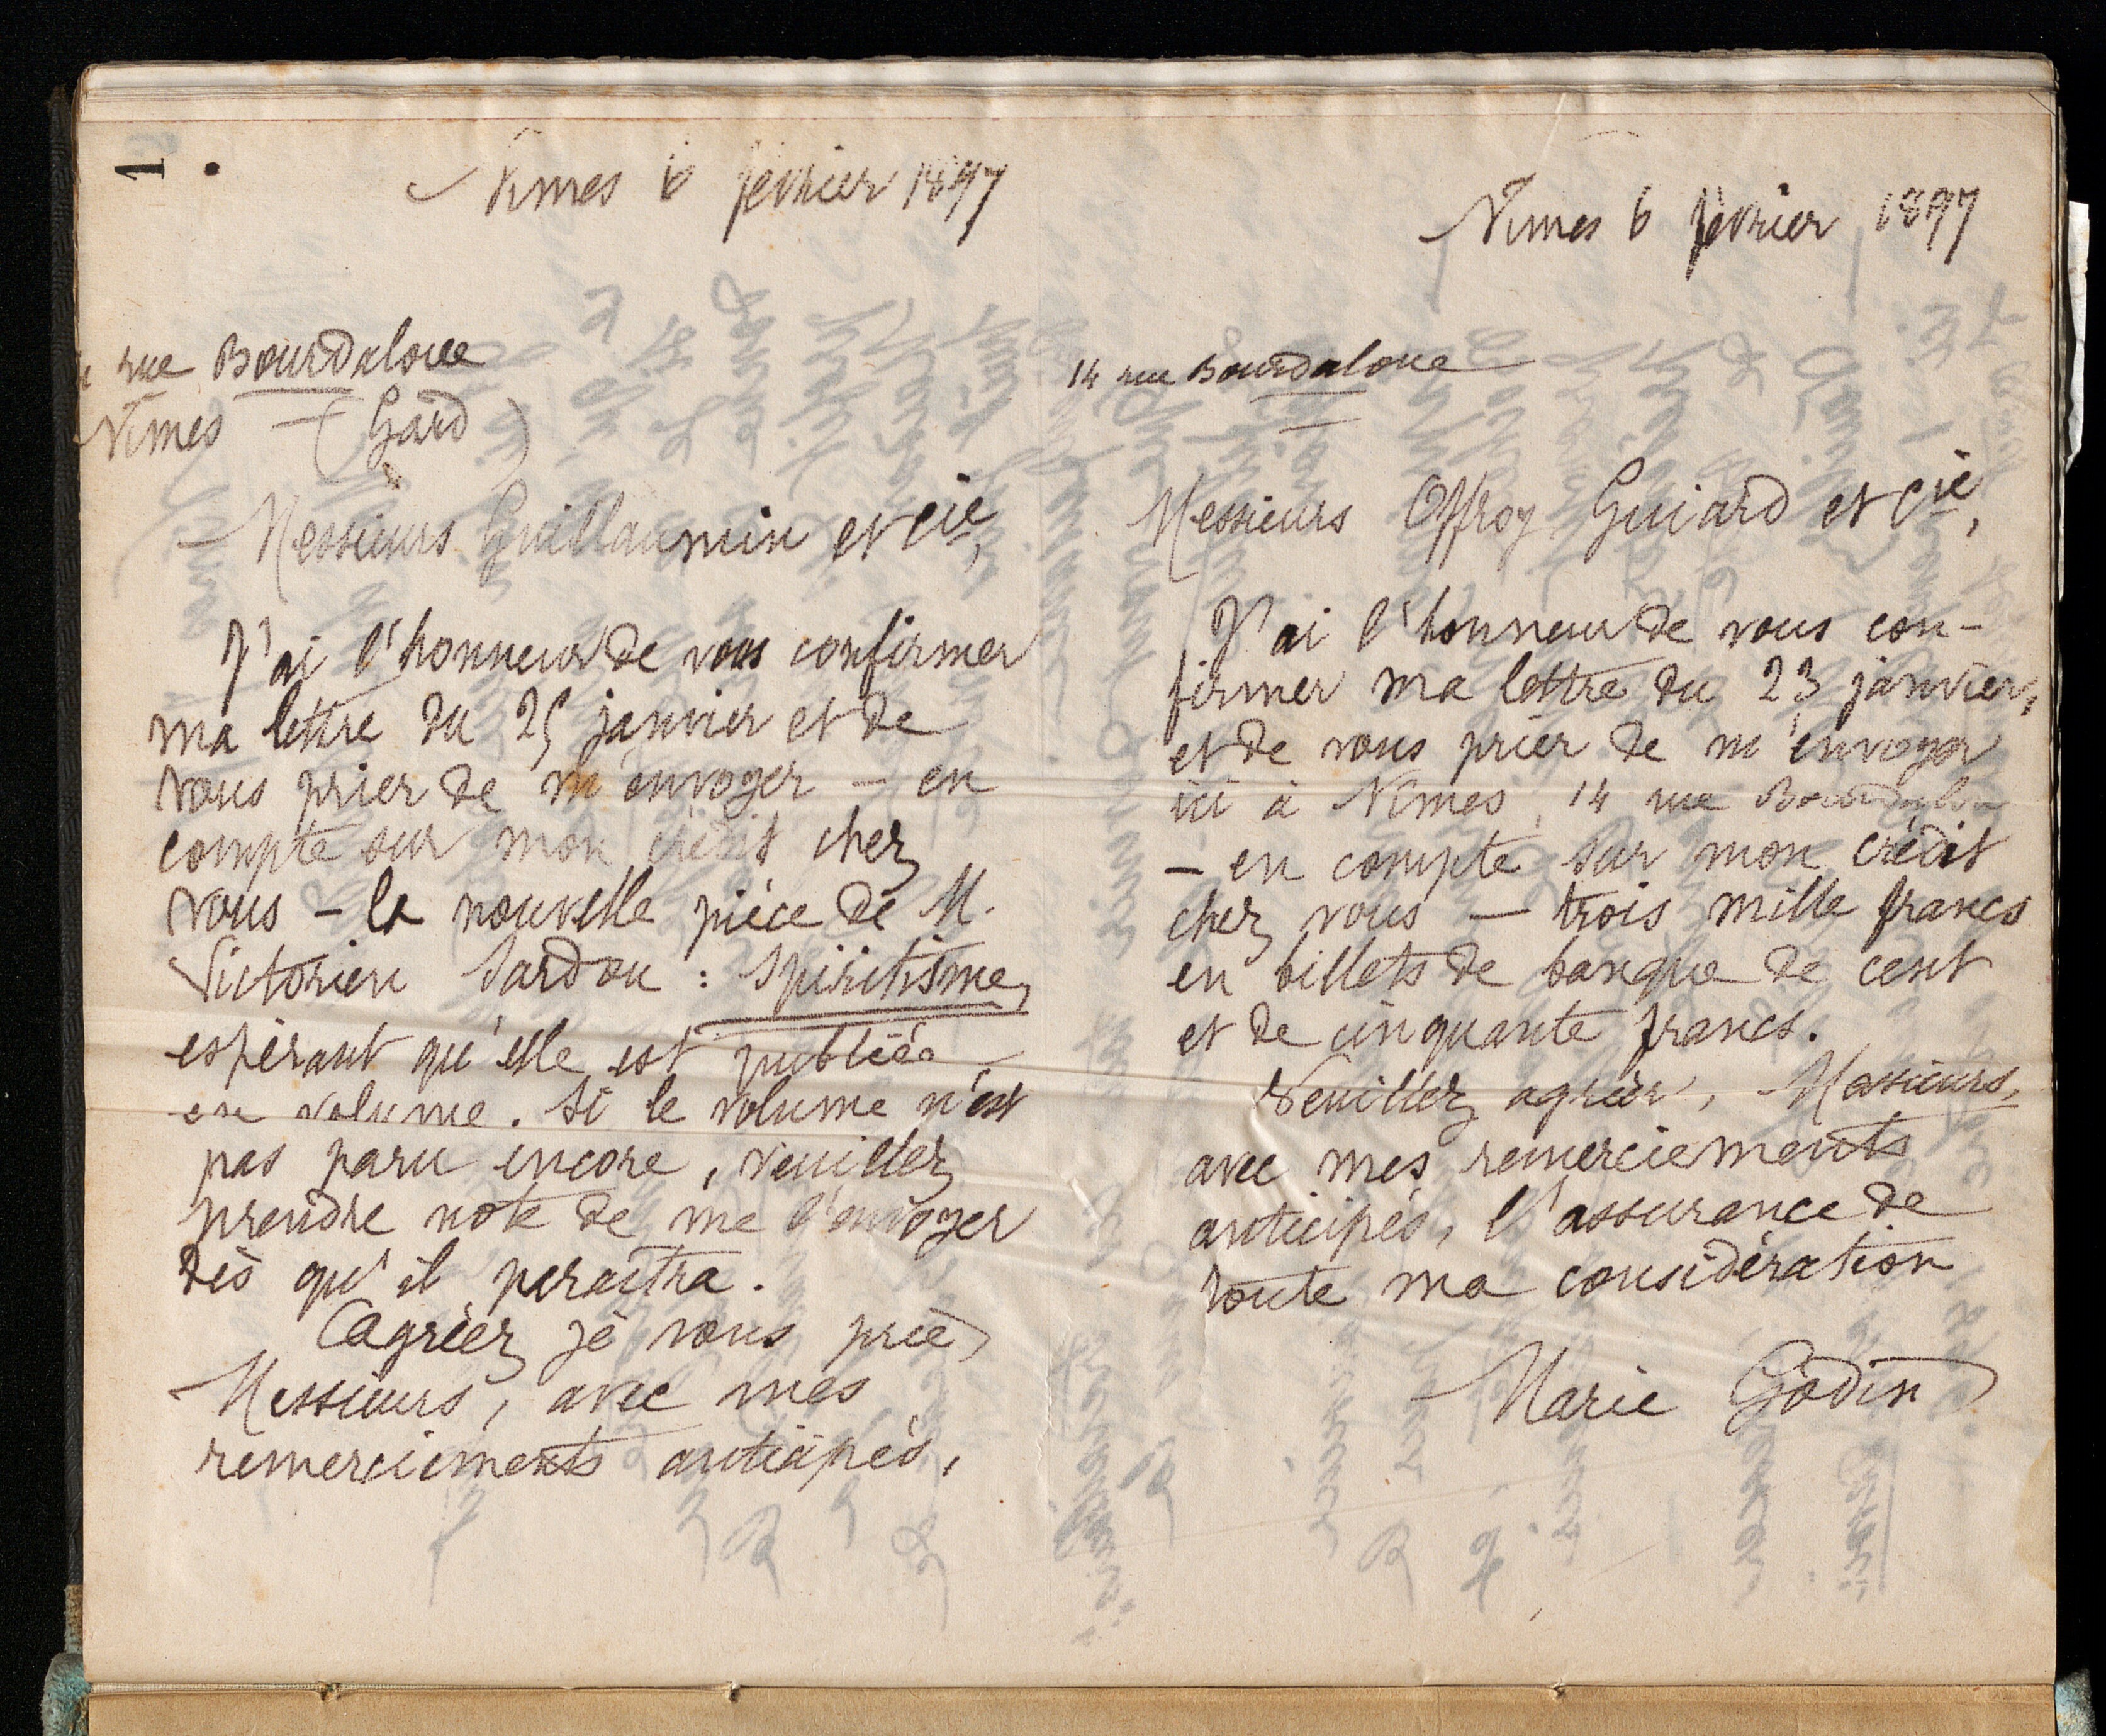 1
Nimes 6 février 1897
rue Bourdaloue
Nimes – (Gard)
Messieurs Guillaumin et Cie,
J'ai l'honneur de vous confirmer
ma lettre du 25 janvier et de
vous prier de m'envoyer – en
compte sur mon crédit chez
vous – la nouvelle pièce de M.
Victorien Sardou : Spiritisme,
espérant qu'elle est publiée
en volume. Si le volume n'est
pas paru encore, veuillez
prendre note de me l'envoyer
dès qu'il paraîtra.
Agréez, je vous prie,
Messieurs, avec mes
remerciements anticipés,
Nimes 6 février 1897
14 rue Bourdaloue
Messieurs Offroy Guiard et Cie,
J'ai l'honneur de vous con-
firmer ma lettre du 23 janvier,
et de vous prier de m'envoyer
ici à Nimes, 14 rue Bourdaloue
– en compte sur mon crédit
chez vous – trois mille francs
en billets de banque de cent
et de cinquante francs.
Veuillez agréer, Messieurs,
avec mes remerciements
anticipés, l'assurance de
toute ma considération
Marie Godin